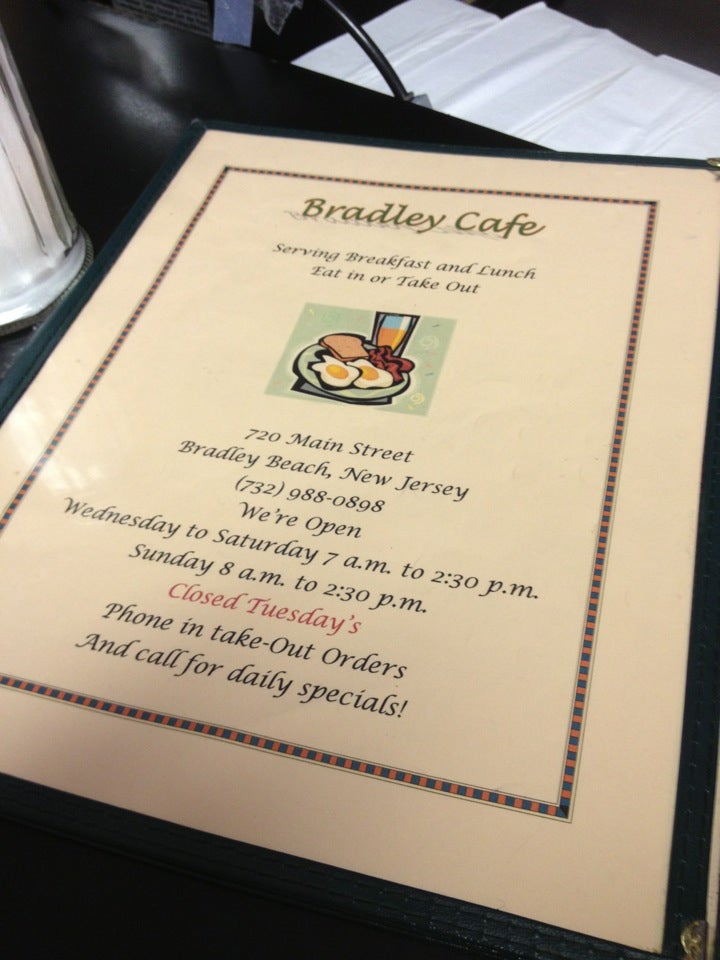 Bradley Cafe
Serving Breakfast and Lunch
Eat in or Take Out
720 Main Street
Bradley Beach, New Jersey
(732) 988-0898
We're Open
Wednesday to Saturday 7 a.m. to 2:30 p.m.
Sunday 8 a.m. to 2:30 p.m.
Closed Tuesday's
Phone in take-Out Orders
And call for daily specials!